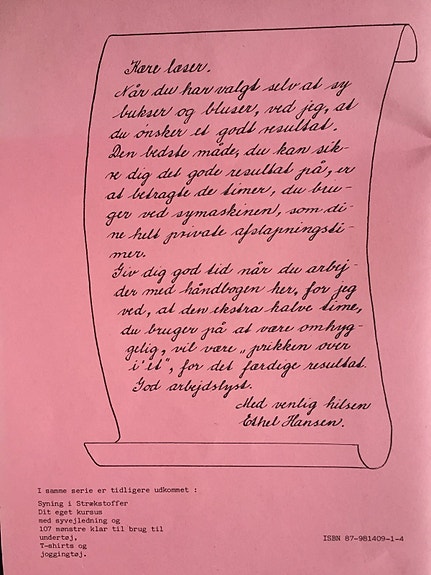 Kære læser.
Når du har valgt selv at sy
bukser og bluser, ved jeg, at
du ønsker et godt resultat.
Den bedste måde, du kan sik-
re dig det gode resultat på, er
at betragte de timer, du bru-
ger ved symaskinen, som di-
ne helt private afslapningsti-
mer.
Giv dig god tid når du arbej-
der med håndbogen her, for jeg
ved, at den ekstra halve time,
du bruger på at være omhyg-
gelig, vil være „prikken over
i'et“, for det færdige resultat.
God arbejdslyst.
Med venlig hilsen
Ethel Hansen.
I samme serie er tidligere udkommet :
Syning i Strækstoffer
Dit eget kursus
med syvejledning og
107 mønstre klar til brug til
undertøj,
T-shirts og
joggingtøj.
ISBN 87-981409-1-4